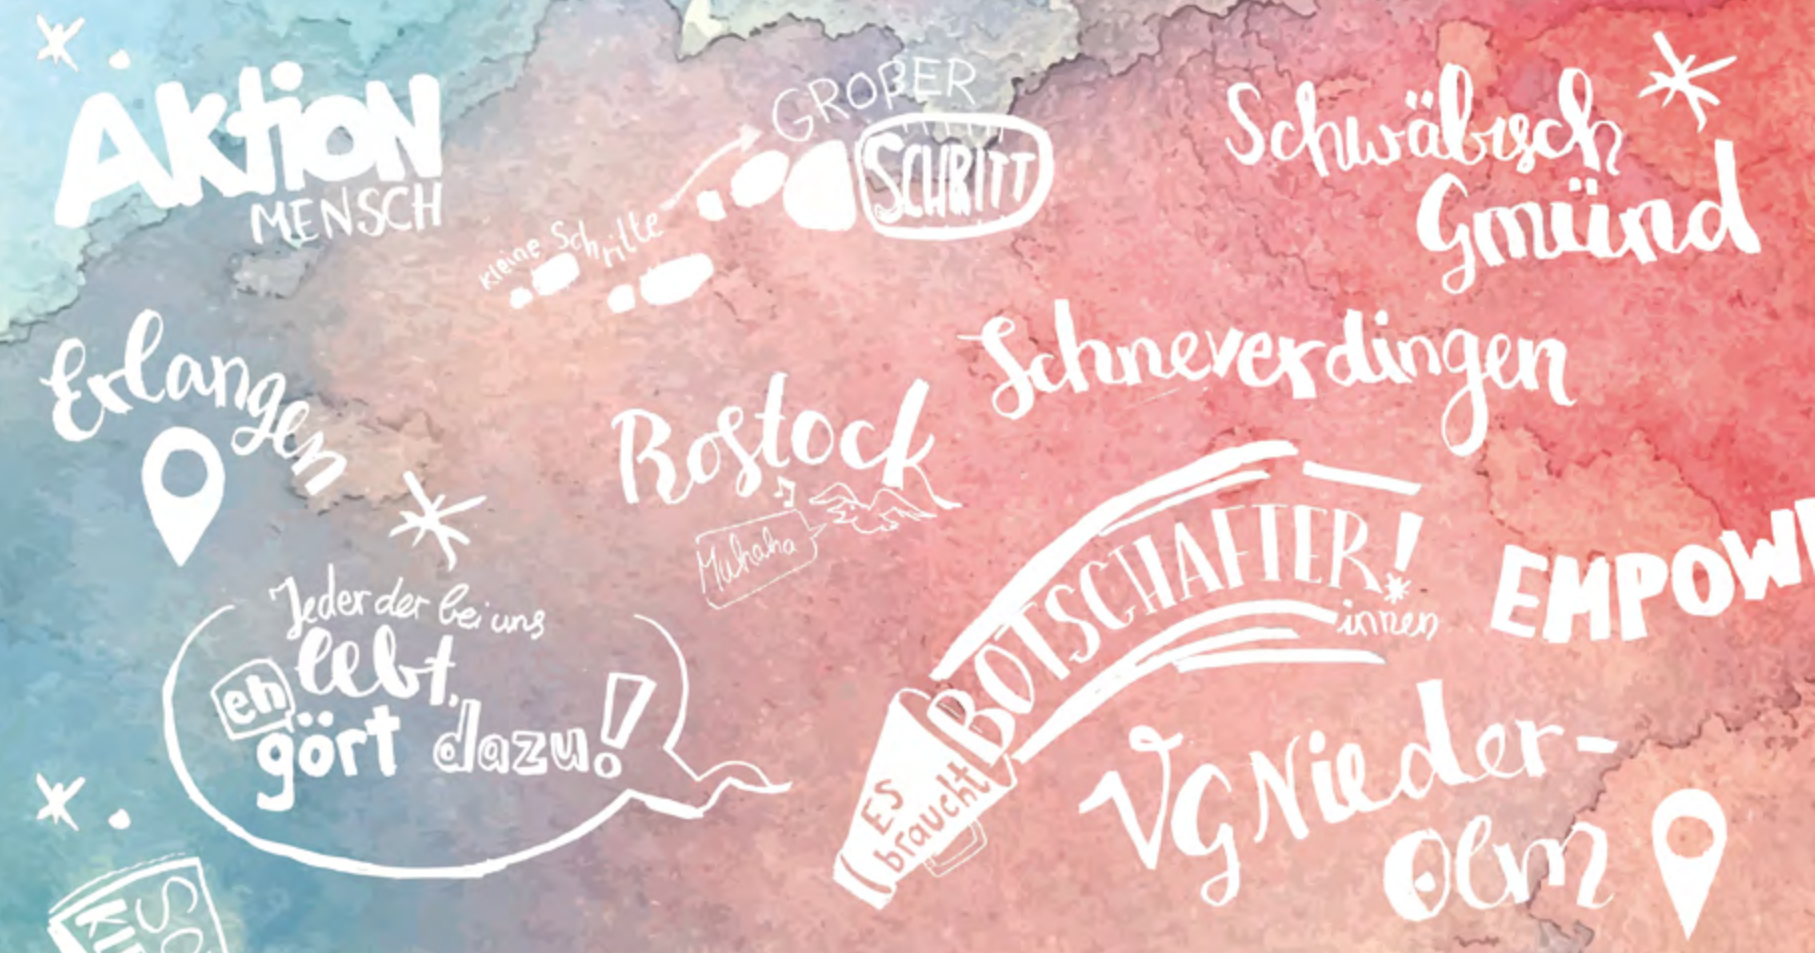 Aktion
MENSCH
kleine Schritte
GROßER
SCHRITT
Schwäbisch
Gmünd
Erlangen
Rostock
Muhaha
Schneverdingen
Jeder der bei uns
lebt,
eh
gört dazu!
ES
braucht
BOTSCHAFTER!
*innen
EMPOW
VG Nieder-
Olm